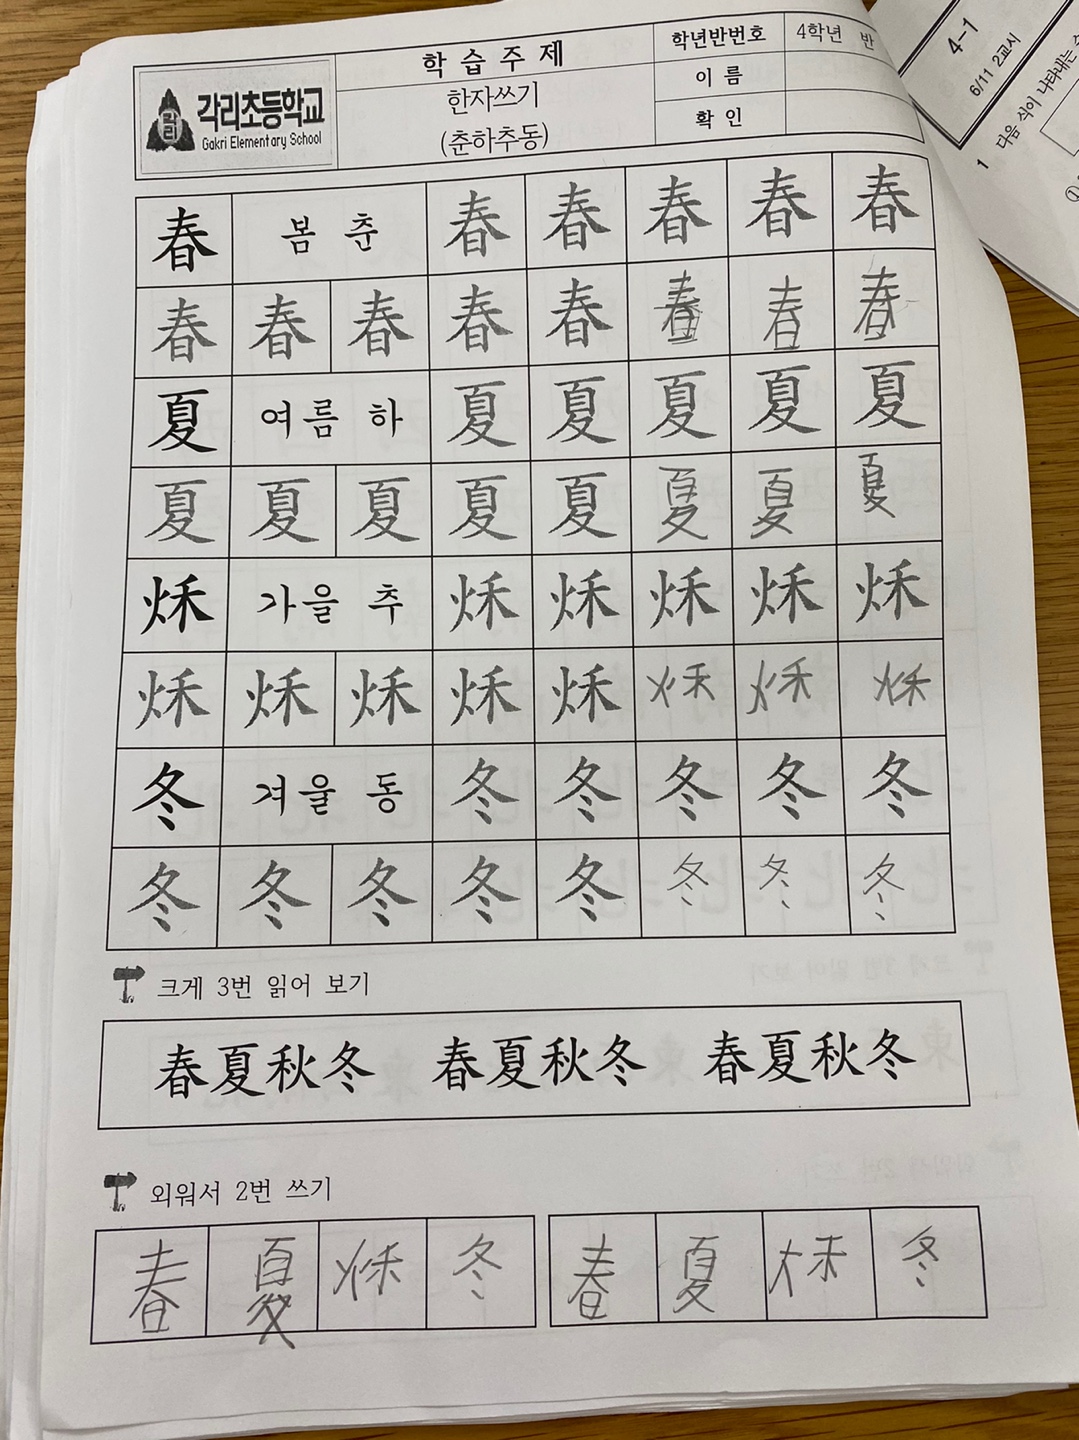 각리초등학교
Gakri Elementary School
각리
학 습 주 제
한자쓰기
(춘하추동)
학년반번호 4학년 반
이 름
확 인
春 봄 춘 春 春 春 春 春
春 春 春 春 春 春 春 春
夏 여름 하 夏 夏 夏 夏 夏
夏 夏 夏 夏 夏 夏 夏 夏
烌 가을 추 烌 烌 烌 烌 烌
烌 烌 烌 烌 烌 烌 烌 烌
冬 겨울 동 冬 冬 冬 冬 冬
冬 冬 冬 冬 冬 冬 冬 冬
크게 3번 읽어 보기
春夏秋冬 春夏秋冬 春夏秋冬
외워서 2번 쓰기
春 夏 烌 冬 春 夏 烌 冬
4-1
6/11 2교시
1 다음 식이 나타내는
①